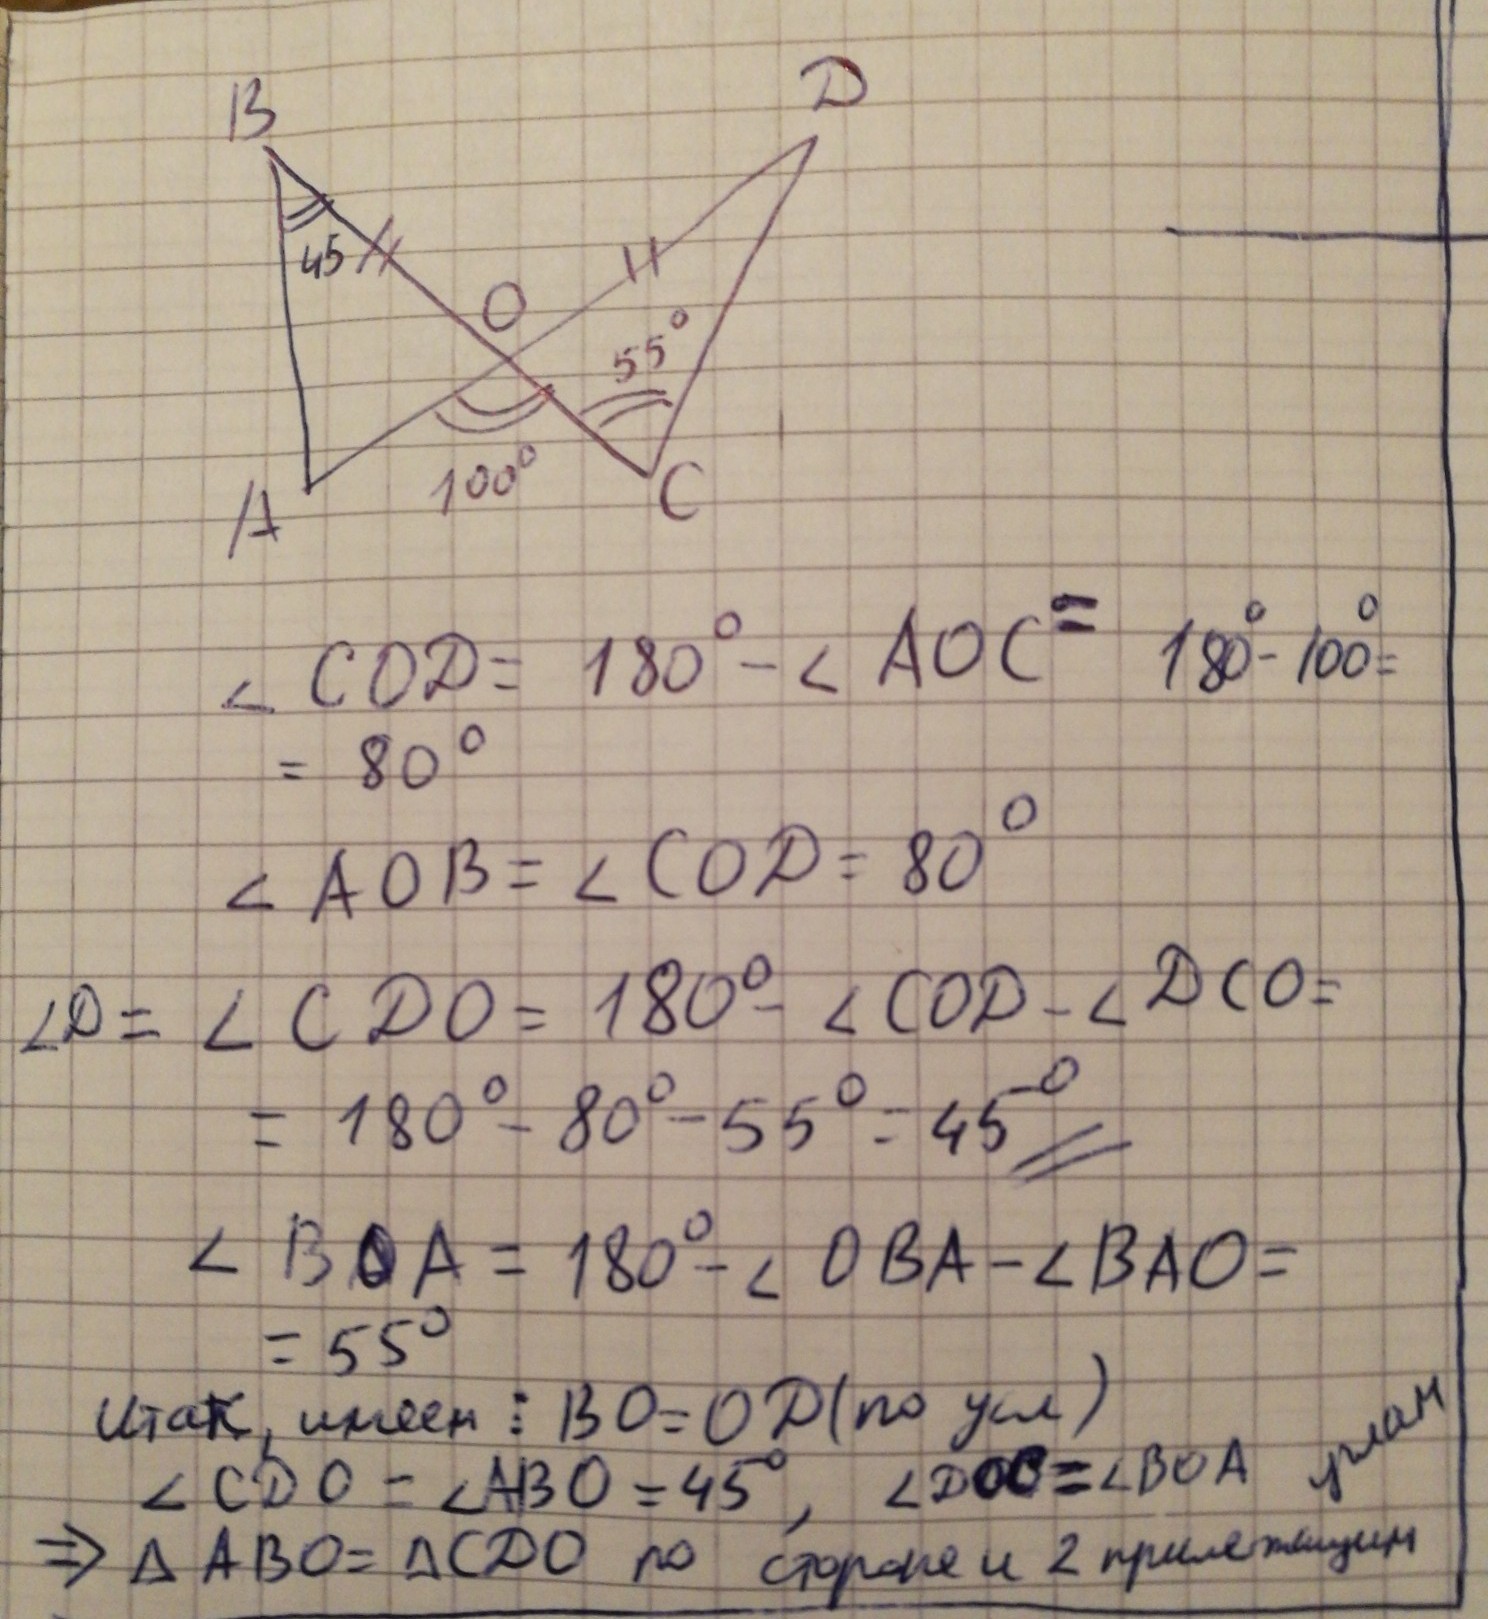 B
D
45
O
55°
100°
A
C
∠ COD = 180° - ∠ AOC = 180° - 100° =
= 80°
∠ AOB = ∠ COD = 80°
∠D = ∠ CDO = 180° - ∠ COD - ∠ DCO =
= 180° - 80° - 55° = 45°
∠ BOA = 180° - ∠ OBA - ∠ BAO =
= 55°
Итак, имеем : BO = OD (по усл)
∠ CDO = ∠ ABO = 45°, ∠ DOC = ∠ BOA
⇒ Δ ABO = Δ CDO по стороне и 2 прилежащим
углам